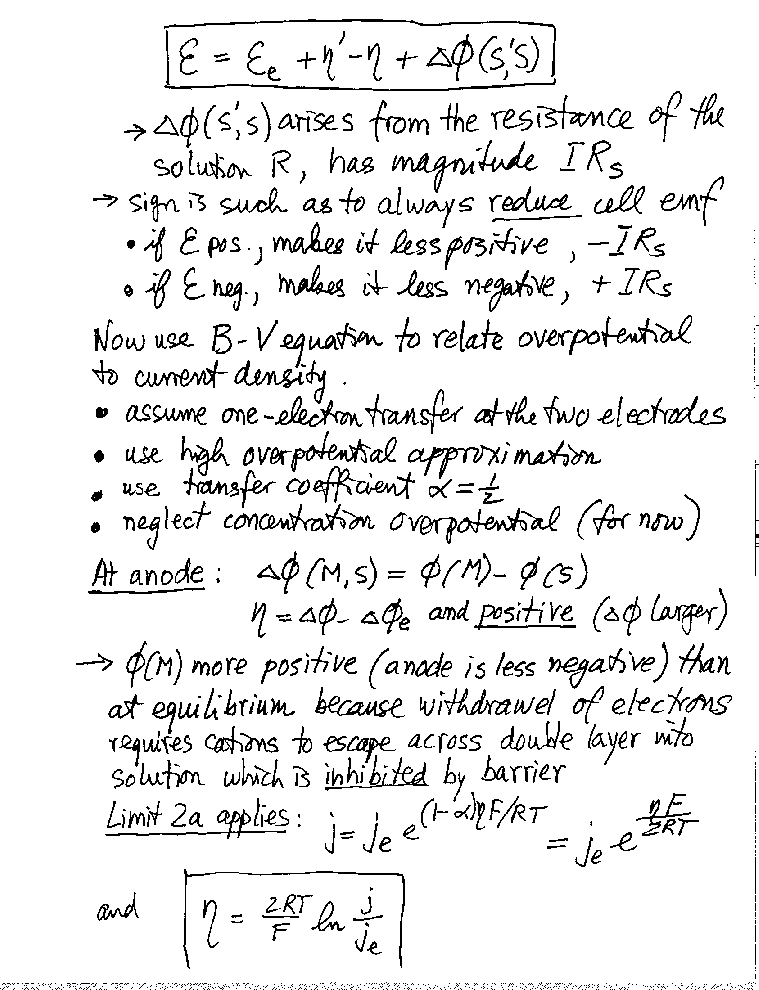 Ɛ = Ɛe + η' - η + Δϕ(S',S)
→ Δϕ(S',S) arises from the resistance of the
solution R, has magnitude IRs
→ sign is such as to always reduce cell emf
• if Ɛ pos., makes it less positive, -IRs
• if Ɛ neg., makes it less negative, + IRs
Now use B-V equation to relate overpotential
to current density.
• assume one-electron transfer at the two electrodes
• use high overpotential approximation
• use transfer coefficient α = 1/2
• neglect concentration overpotential (for now)
At anode: Δϕ(M,S) = ϕ(M) - ϕ(S)
η = Δϕ - Δϕe and positive (Δϕ larger)
→ ϕ(M) more positive (anode is less negative) than
at equilibrium because withdrawel of electrons
requires cations to escape across double layer into
solution which is inhibited by barrier
Limit 2a applies: j = je e^(1-α)ηF/RT = je e^ηF/2RT
and η = 2RT/F ln j/je